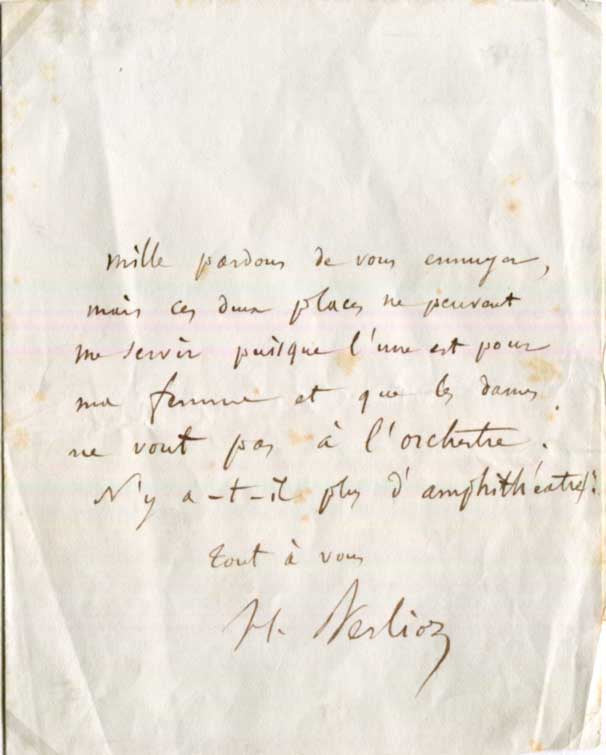 Mille pardons de vous ennuyer,
mais ces deux places ne peuvent
me servir puisque l'une est pour
ma femme et que les dames
ne vont pas à l'orchestre.
N'y a-t-il plus d'amphithéatre?
tout à vous
H. Berlioz